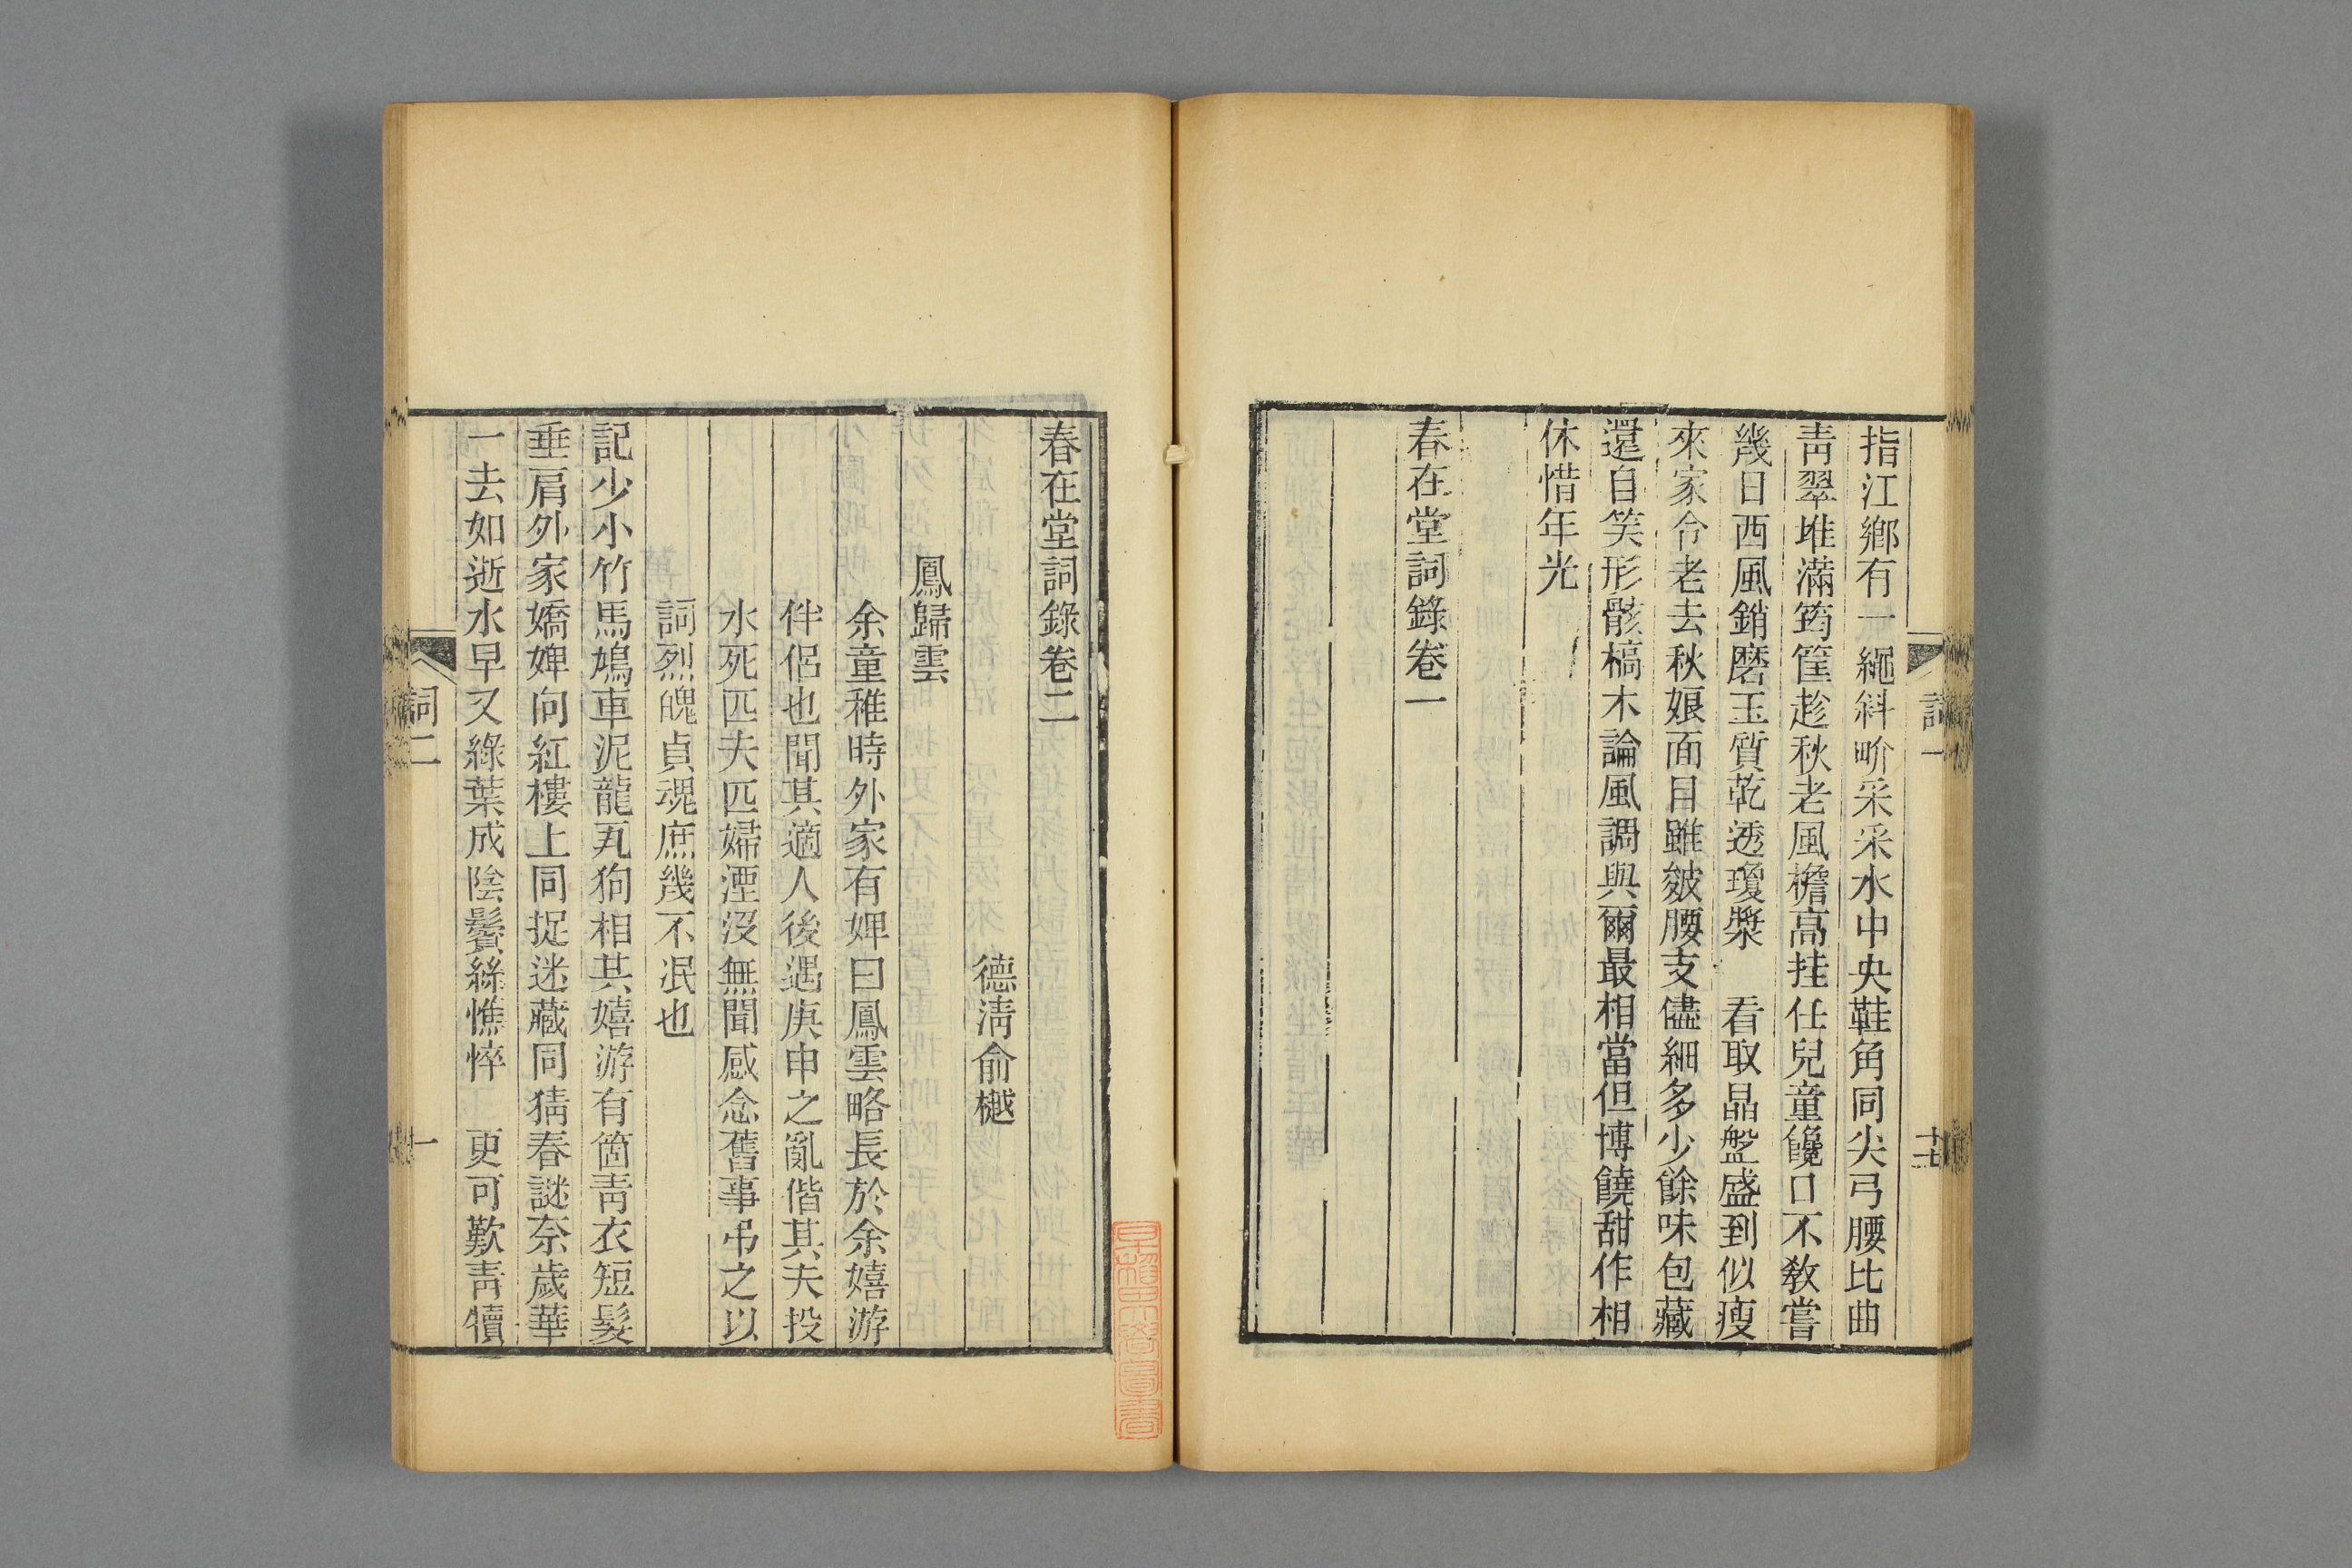 指江鄉有一繩斜畍采采水中央鞋角同尖弓腰比曲
青翠堆滿筠筐趁秋老風檐高挂任兒童饞口不敎嘗
幾日西風銷磨玉質乾透瓊漿　看取晶盤盛到似瘦
來家令老去秋娘面目雖皴腰支儘細多少餘味包藏
還自笑形骸槁木論風調與爾最相當但博饒甜作相
休惜年光
春在堂詞錄卷一
春在堂詞錄卷二
德淸俞樾
鳳歸雲
余童稚時外家有婢曰鳳雲略長於余嬉游
伴侶也聞其適人後遇庚申之亂偕其夫投
水死匹夫匹婦湮沒無聞感念舊事弔之以
詞烈魄貞魂庶幾不泯也
記少小竹馬鳩車泥龍瓦狗相其嬉游有箇靑衣短髮
垂肩外家嬌婢向紅樓上同捉迷藏同猜春謎奈歲華
一去如逝水早又綠葉成陰鬢絲憔悴　更可歎靑犢
詞二
一